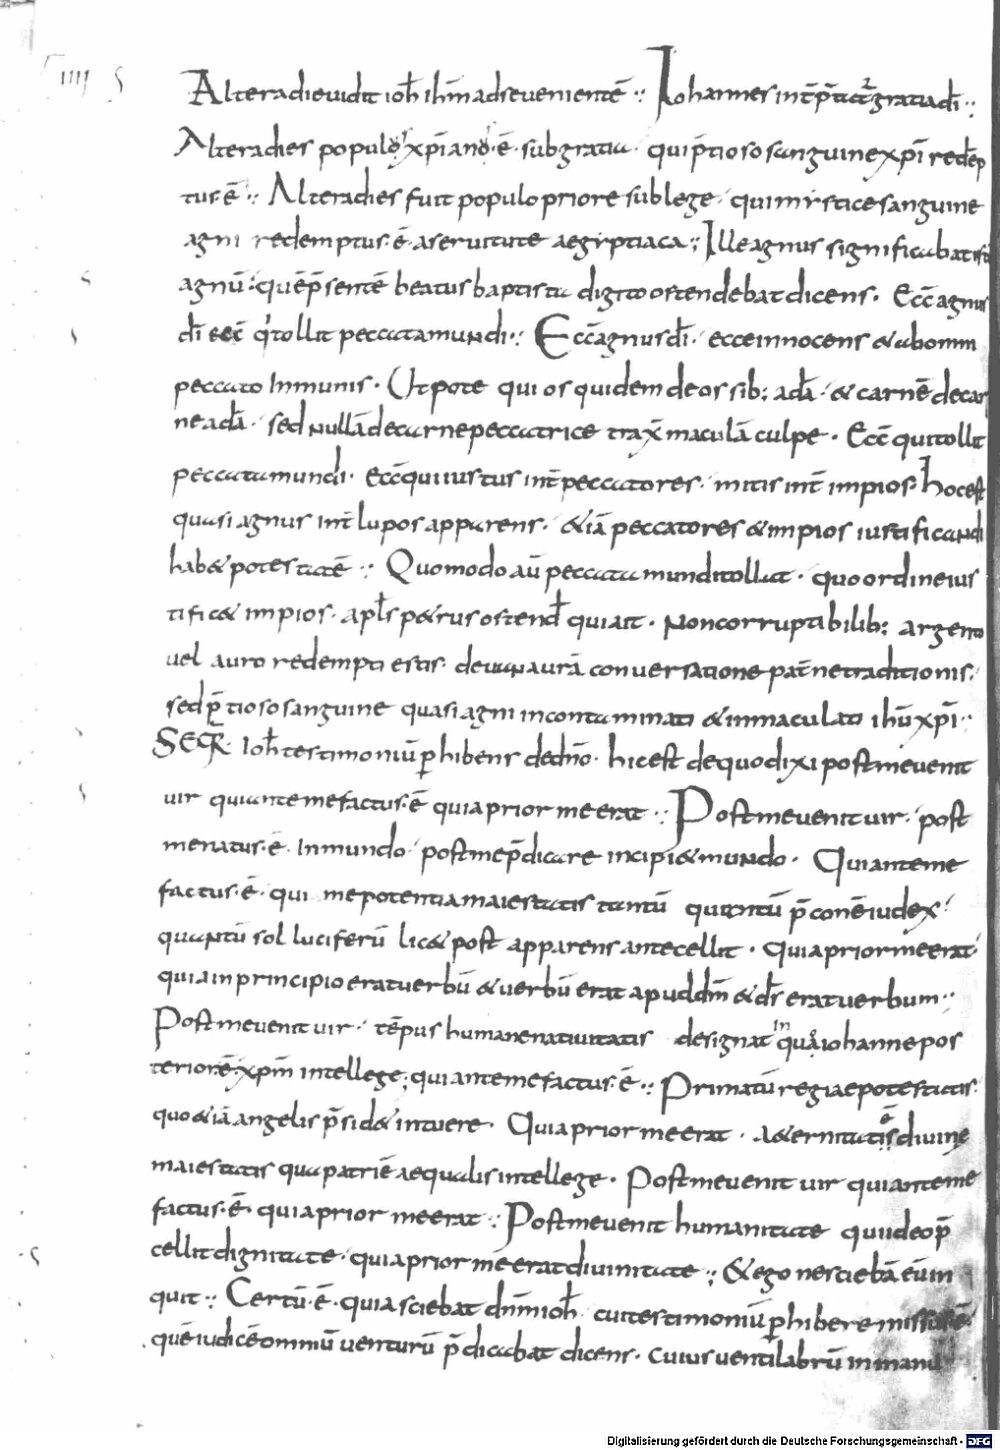 IIII Altera die uidit ioh̄ ih̄m adse uenientē :· Iohannes int̄p̄tat̄ gratia dī :·
Altera dies populo xp̄iano · ē · sub gratia · qui p̄tioso sanguine xp̄i redēp
tus · ē :· Altera dies fuit populo priore sub lege · qui mystice sanguine
agni redemptus · ē a seruitute aegyptiaca ; Ille agnus significabat istū
agnū · quē p̄sentē beatus baptista digito ostendebat dicens · Ecc̄ agnus
dī ecc̄ q' tollit peccata mundi :· Ecc̄ agnus dī · ecce innocens & ab omni
peccato Inmunis · Ut pote qui os quidem de ossib; adā · & carnē decar
ne adā · sed nullā decarne peccatrice trax̄ maculā culpe · Ecc̄ qui tollit
peccata mundi · ecc̄ qui iustus int̄ peccatores · mitis int̄ impios · hoc est
quasi agnus int̄ lupos apparens · &iā peccatores & impios iustificandi
hab& potestatē :· Quomodo aū peccata mundi tollat · quo ordine ius
tific& impios · apl̄s p&rus ostend̄ qui ait · Non corruptibilib; argento
uel auro redempti estis · de uana urā conuersatione pat̄ne traditionis ·
sed p̄tioso sanguine quasi agni incontaminati & inmaculati ih̄u xp̄i :·
SEQR̄ Ioh̄ testimoniū p̱hibens de dn̄o · hic est de quo dixi post me uenit
uir qui ante me factus · ē quia prior me erat :· Post me uenit uir · post
me natus · ē · In mundo · post me p̄dicare incipi& mundo · Qui ante me
factus · ē · qui me potentia maiestatis tantū quantū p̄conē iudex ·
quantū sol luciferū lic& post apparens antecellit · Quia prior me erat ·
quia in principio erat uerbū & uerbū erat apud dm̄ & ds̄ erat uerbum :·
Post me uenit uir · tēpus humane natiuitatis designat in qua iohanne pos
teriorē xpm̄ intellege ; qui ante me factus · ē :· Primatū regiae potestatis ·
quo &iā angelis p̄sid& intuere · Quia prior me erat · A&ernitatis ē diuine
maiestatis qua patri ē aequalis intellege · Post me uenit uir qui ante me
factus · ē · quia prior me erat :· Post me uenit humanitate qui ideo p̄
cellit dignitate · quia prior me erat diuinitate :· & ego nesciebā eum in
quit :· Certū · ē · quia sciebat dn̄m ioh̄ · cui testimoniū p̱hibere missus · ē ·
quē iudicē omniū uenturū p̄dicabat dicens · cuius uentilabrū in manu
Digitalisierung gefördert durch die Deutsche Forschungsgemeinschaft - DFG